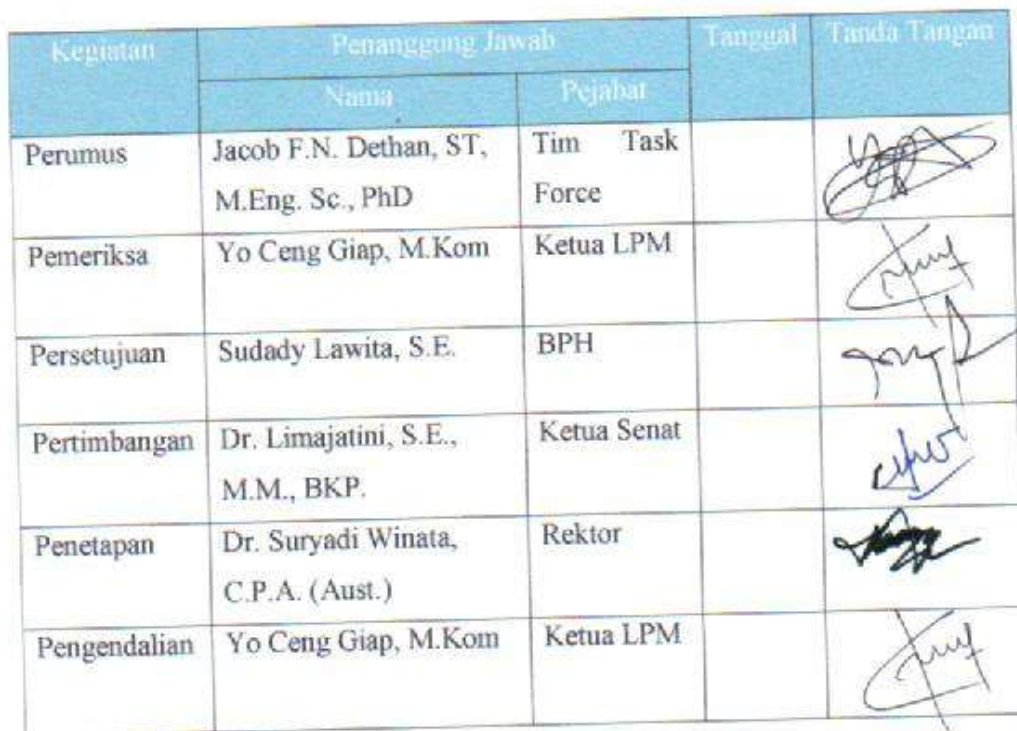 Kegiatan Penanggung Jawab Tanggal Tanda Tangan
Nama Pejabat
Perumus Jacob F.N. Dethan, ST, Tim Task
M.Eng. Sc., PhD Force
Pemeriksa Yo Ceng Giap, M.Kom Ketua LPM
Persetujuan Sudady Lawita, S.E. BPH
Pertimbangan Dr. Limajatini, S.E., Ketua Senat
M.M., BKP.
Penetapan Dr. Suryadi Winata, Rektor
C.P.A. (Aust.)
Pengendalian Yo Ceng Giap, M.Kom Ketua LPM